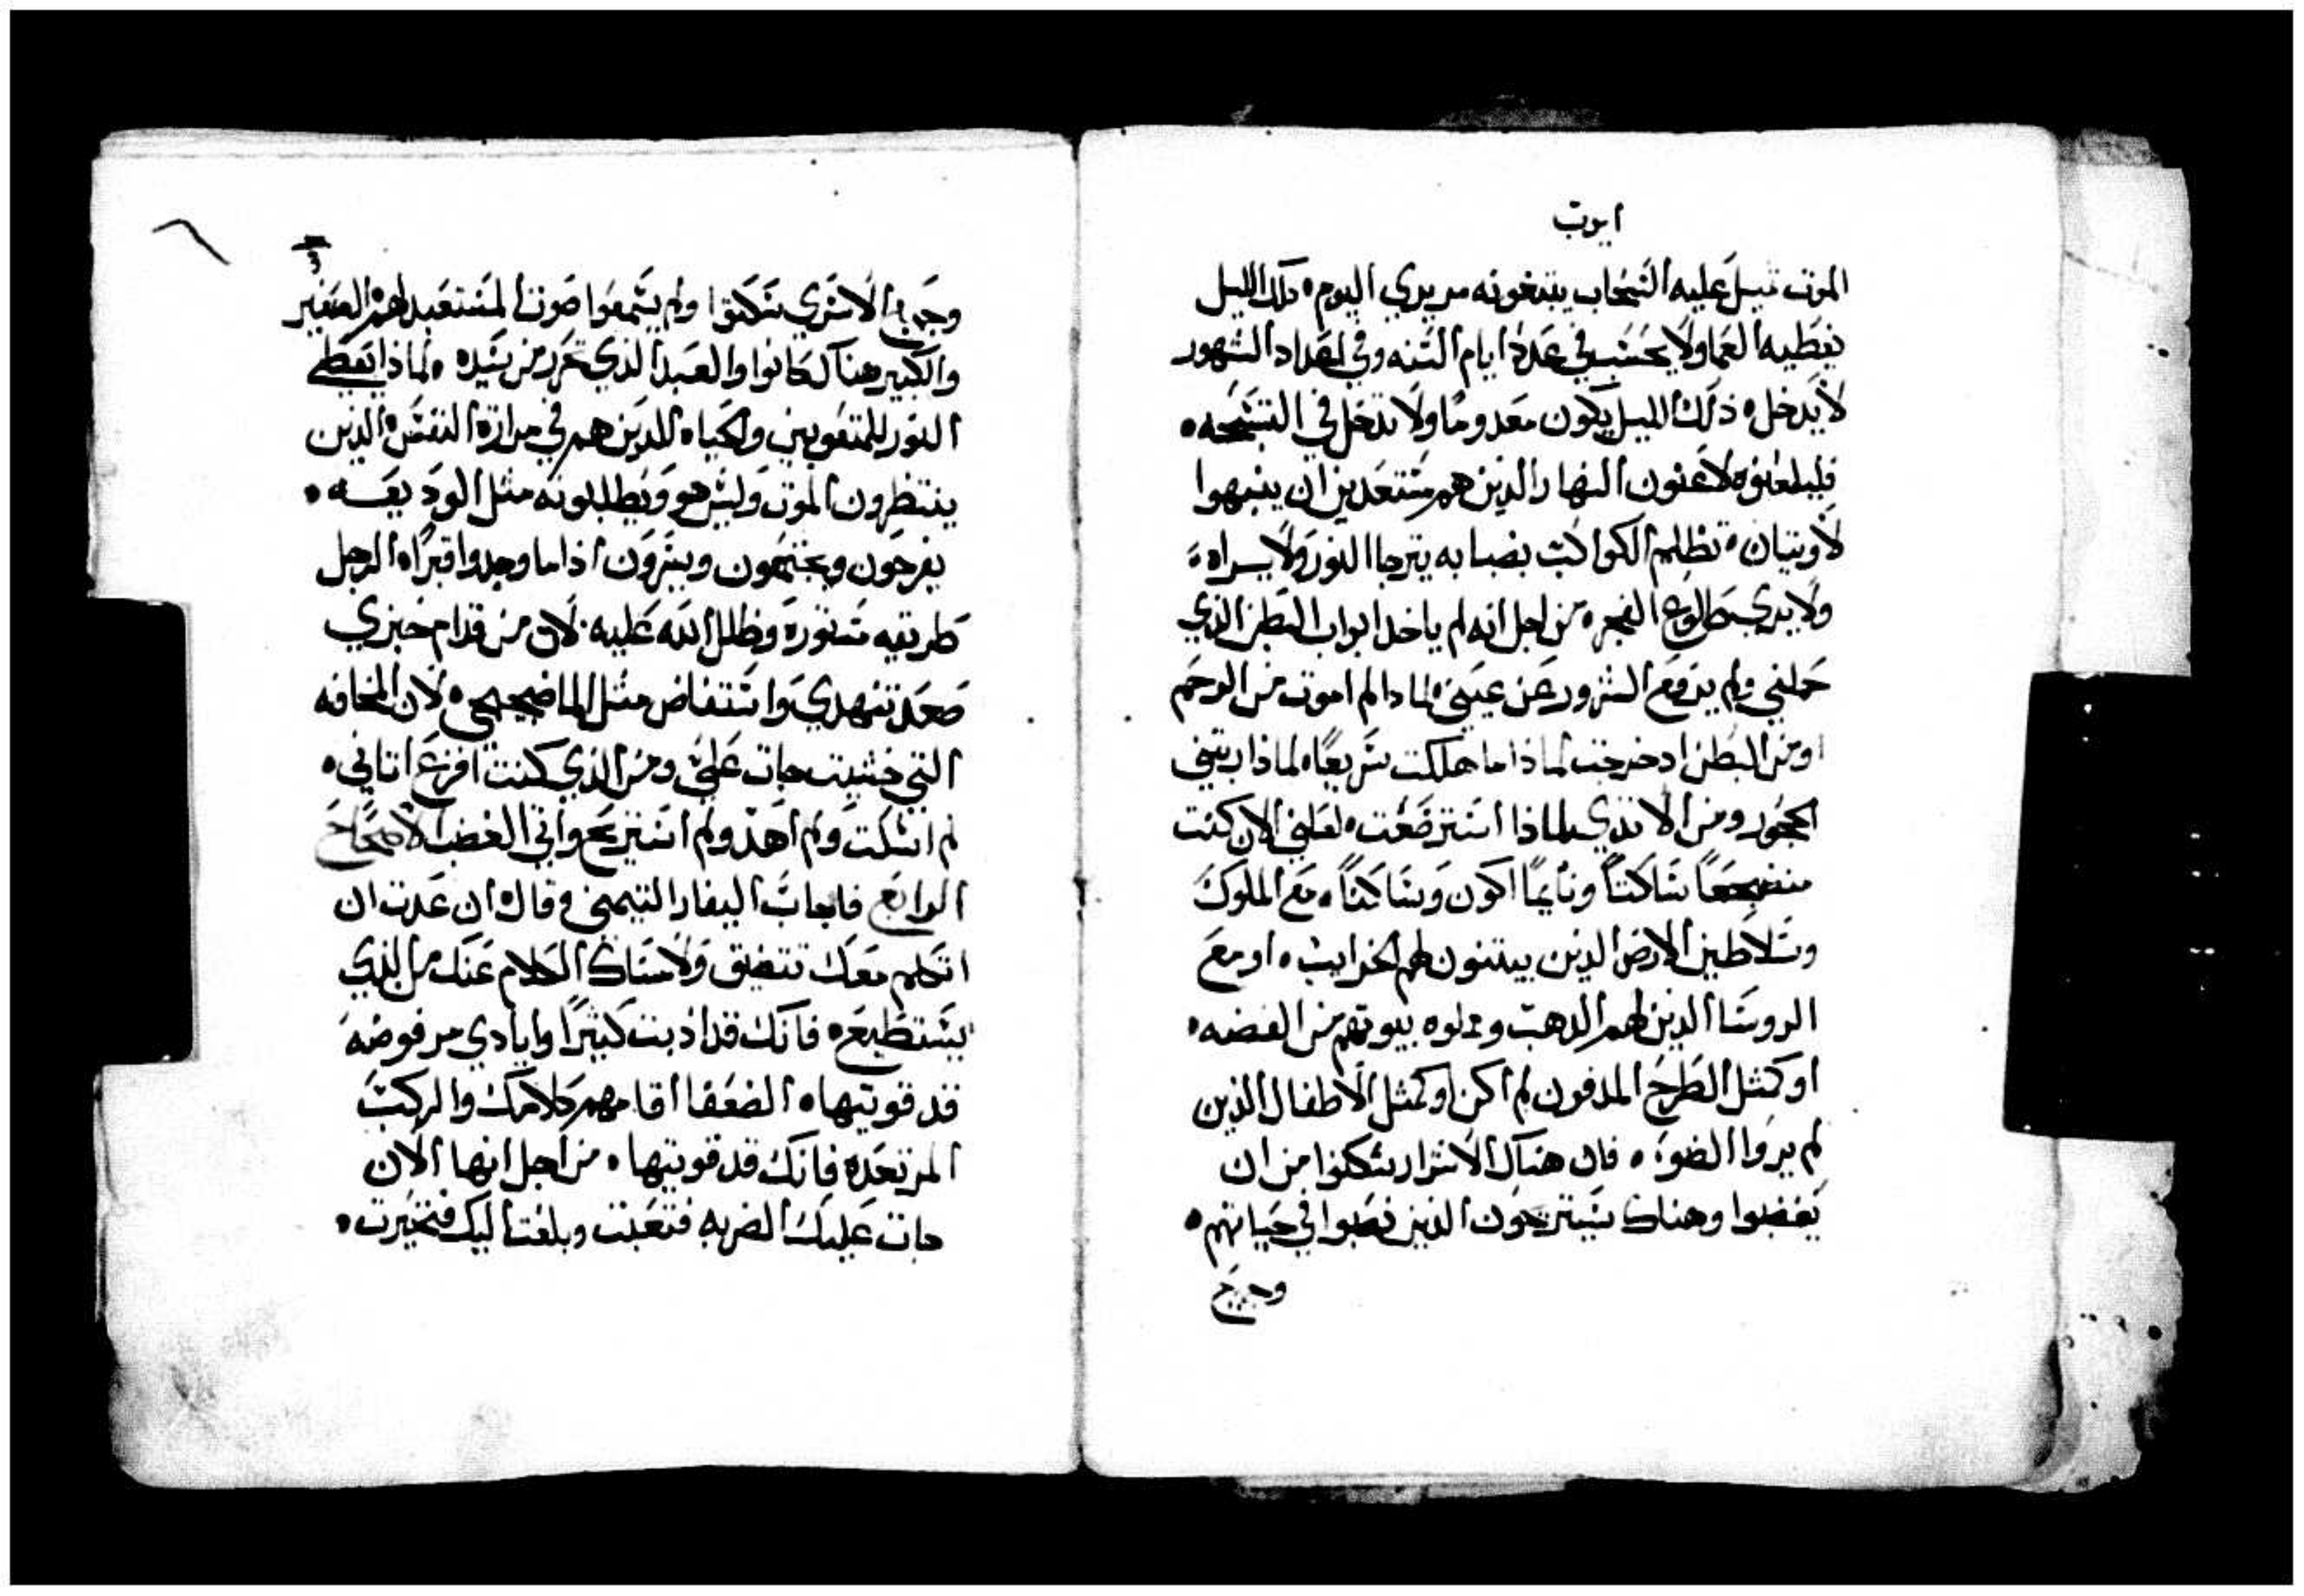 ايوب
الموت تسل عليه السحاب يبتغونه مريري اليوم ٥ ذلك الليل
يغطيه العما ولا يحسب في عدد ايام السنه وفي اعداد الشهور
لا يدخل ٥ ذلك الليل يكون معدوما ولا تدخل في التسبحه ٥
فليلعنوه لاعنون النهار الذين هم مستعدين ان ينبهوا
لاويتان ٥ تظلم الكواكب بضبابه يترجا النور ولا يراه ٥
ولا يدي طلوع الفجر ٥ من اجل انه لم ياخد ابواب البطن الذي
حملني ولم يرفع الشرور عن عيني ٥ لماذا لم اموت من الرحم
او من البطن اد خرجت لماذا ما هلكت سريعًا ٥ لماذا ربتني
الحجور ومن الاثدي لماذا استرضعت ٥ لعلني الان كنت
منضجعًا ساكتًا ونايمًا اكون وساكنًا ٥ مع الملوك
وسلاطين الارض الذين يبتنون لهم الخرايب ٥ او مع
الروسا الذين لهم الدهب وملوه بيوتهم من الفضه ٥
او كمثل الطرح المدفون لم اكن او كمثل الاطفال الذين
لم يروا الضوء ٥ فان هناك الاشرار سكنوا من ان
يغضبوا وهناك يستريحون الذين نصبوا في حياتهم ٥
وجميع
وجميع الاسري سكتوا ولم يسمعوا صوت المستعبد لهم ٥ الصغير
والكبير هناك كانوا والعبد الذي تحرر من سيده ٥ لماذا يعطي
النور للمتعوبين والحياه للذين هم في مرارة النفس ٥ الذين
ينتظرون الموت وليس هو ويطلبونه مثل الوديعه ٥
يفرحون ويجتمعون ويسرون اذا ما وجدوا قبرًا ٥ الرجل
طريقه مستوره وظلل الله عليه ٠ لان من قدام خبزي
صعد تنهدي واستفاض مثل الما ضجيجي ٥ لان المخافه
التي خشيت جات علي ومن الذي كنت افزع اتاني ٥
لم اسكت ولم اهد ولم استريح واتي الغضب الاصحاح
الرابع فاجاب اليفاز التيمني وقال ٥ ان عدت ان
اتكلم معك تتضيق ولامساك الكلام عنك من الذي
يستطيع ٥ فانك قد ادبت كثيرًا وايادي مرفوضه
قد قويتها ٥ الضعفا اقامهم كلامك والركب
المرتعده فانك قد قويتها ٥ من اجل انها الان
جات عليك الضربه فتعبت وبلغت اليك فتحيرت ٥